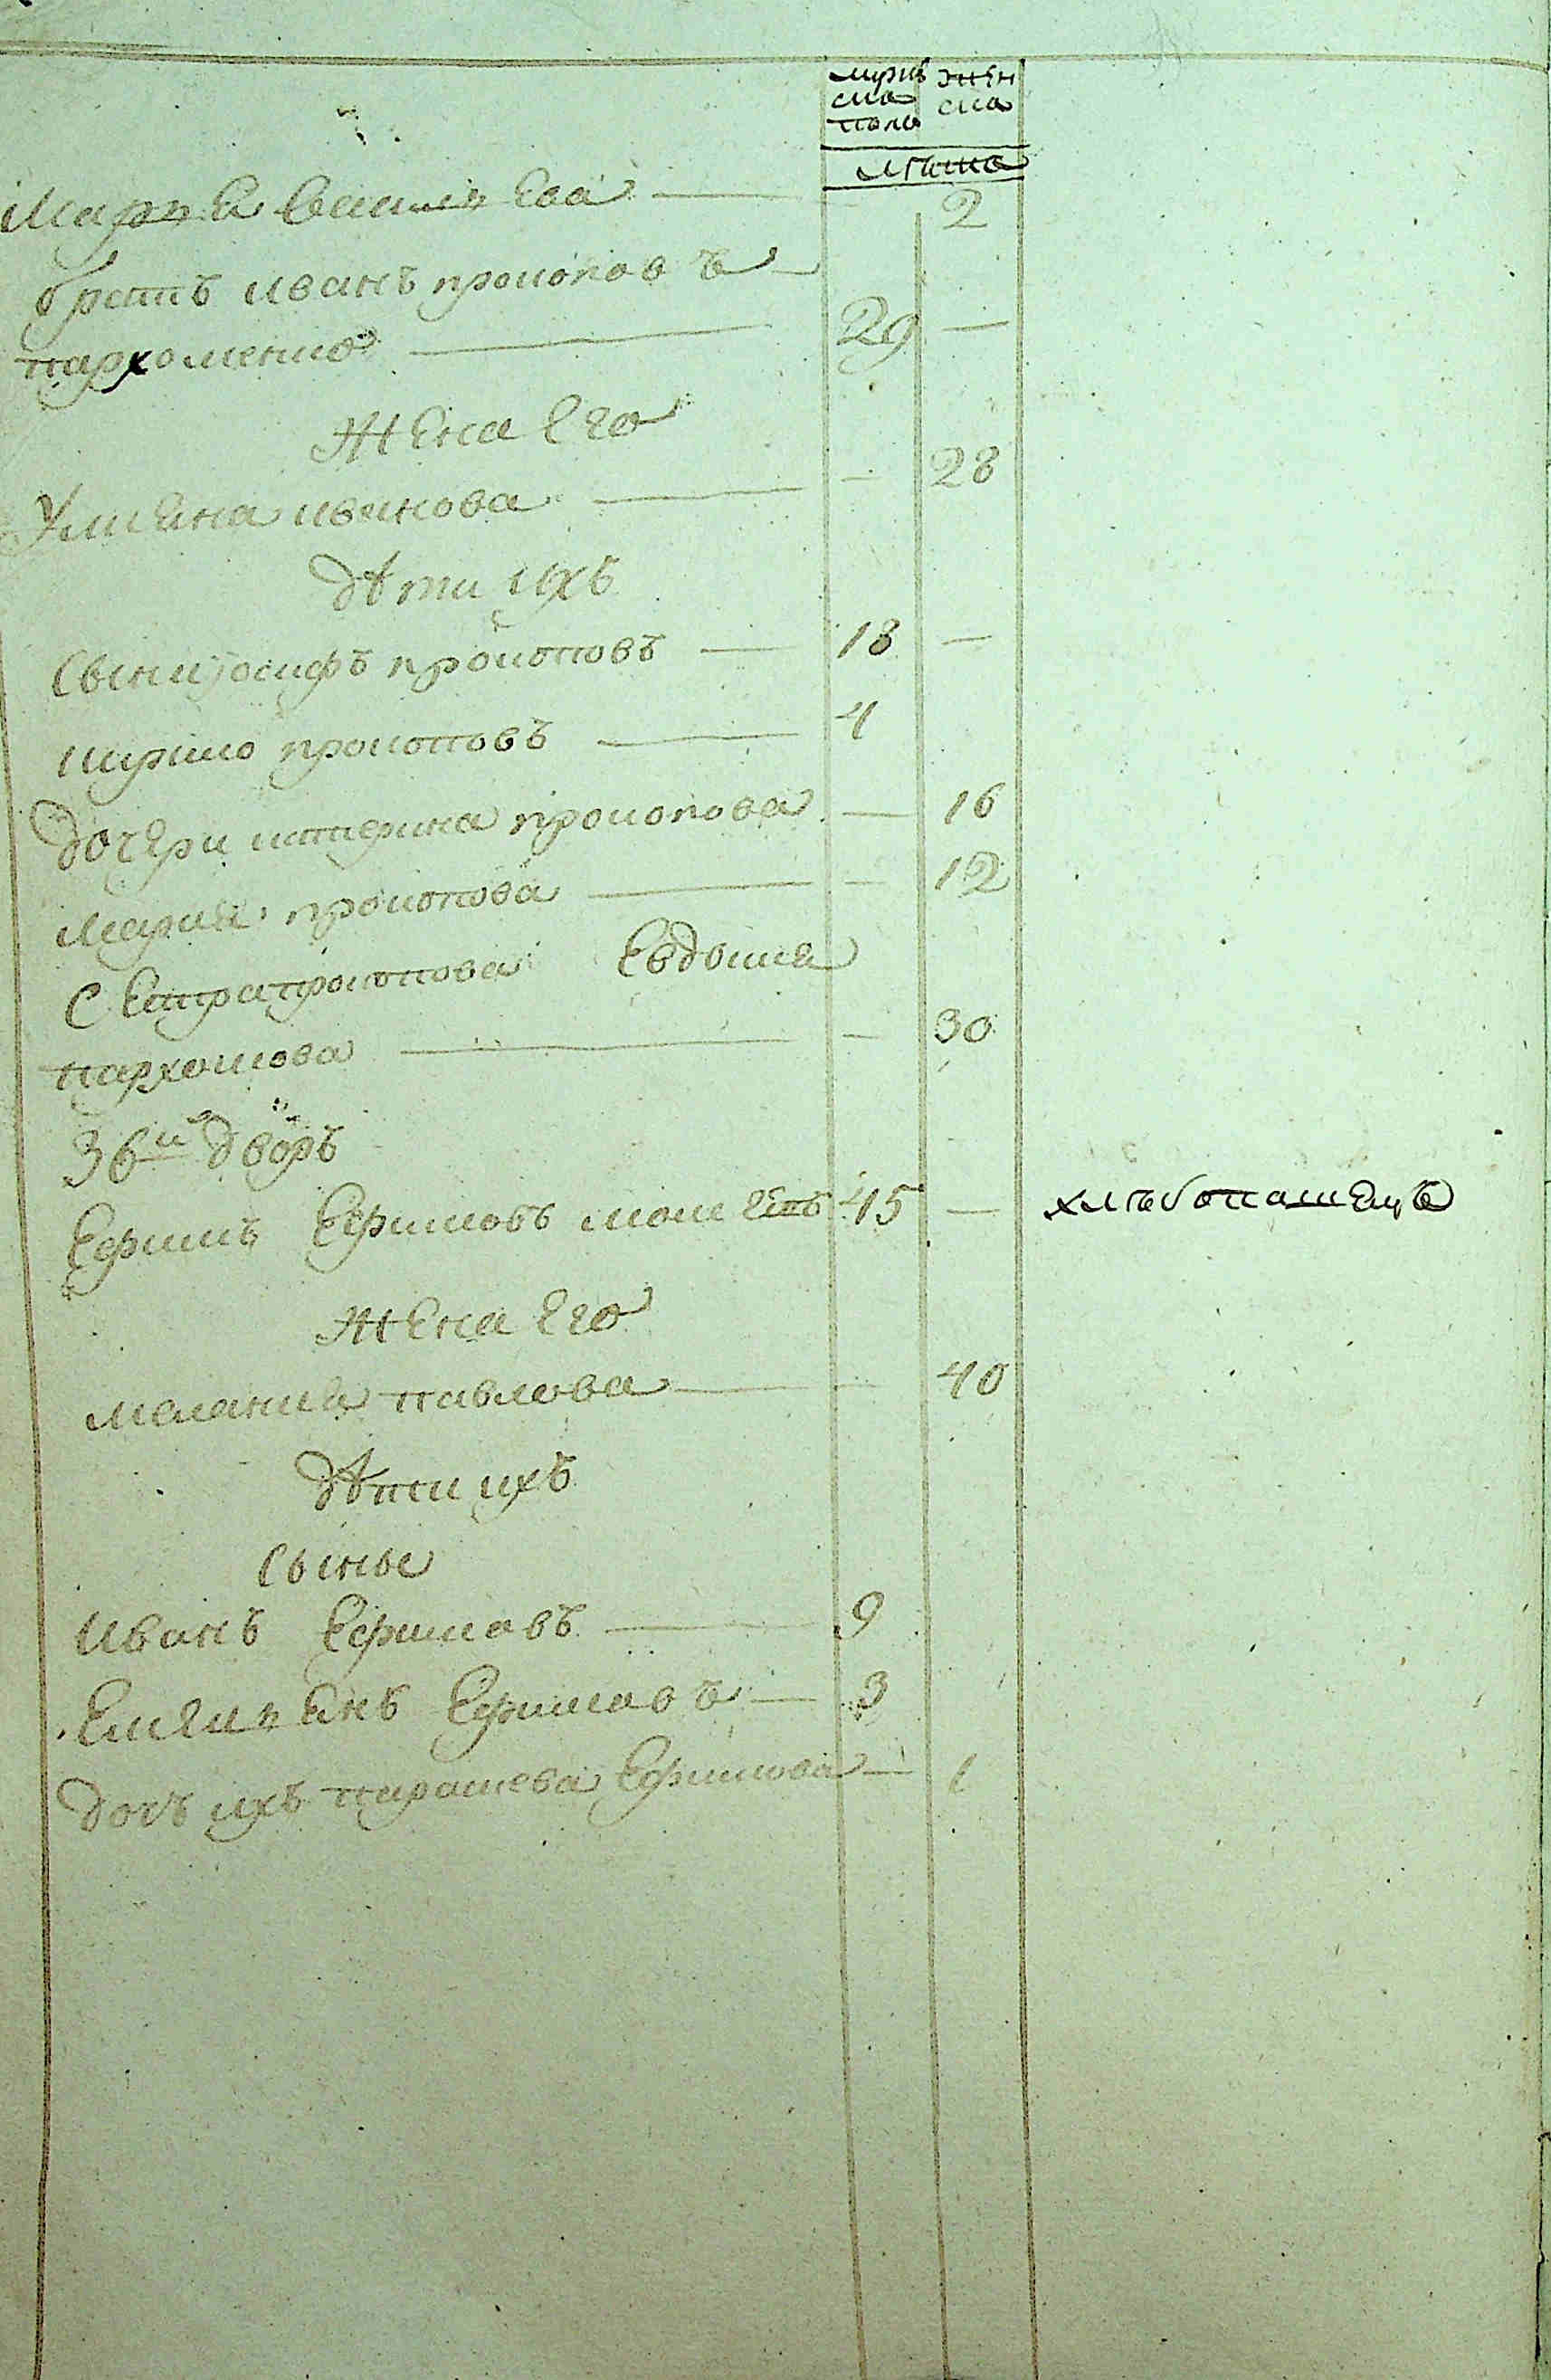 мужес женс
ска ска
пола
лѣта
Марья Васильева — 2
братъ иванъ прокоповъ —
пархоменко — 29 —
Жена Его
Ульяна иванова — — 28
Дѣти ихъ
Сыни иосифъ прокоповъ — 18 —
кирило прокоповъ — 4
дочери катерина прокопова — 16
Мария прокопова — — 12
Сестра прокопова Евдокия
пархомова — — 30
36й дворъ
Ефимъ Ефимовъ 45 — хлѣбопашецъ
Жена Его
Мелания павлова — — 40
Дѣти ихъ
Сыны
Иванъ Ефимовъ — 9
Емельянъ Ефимовъ — 3
дочь ихъ параскева Ефимова — 1